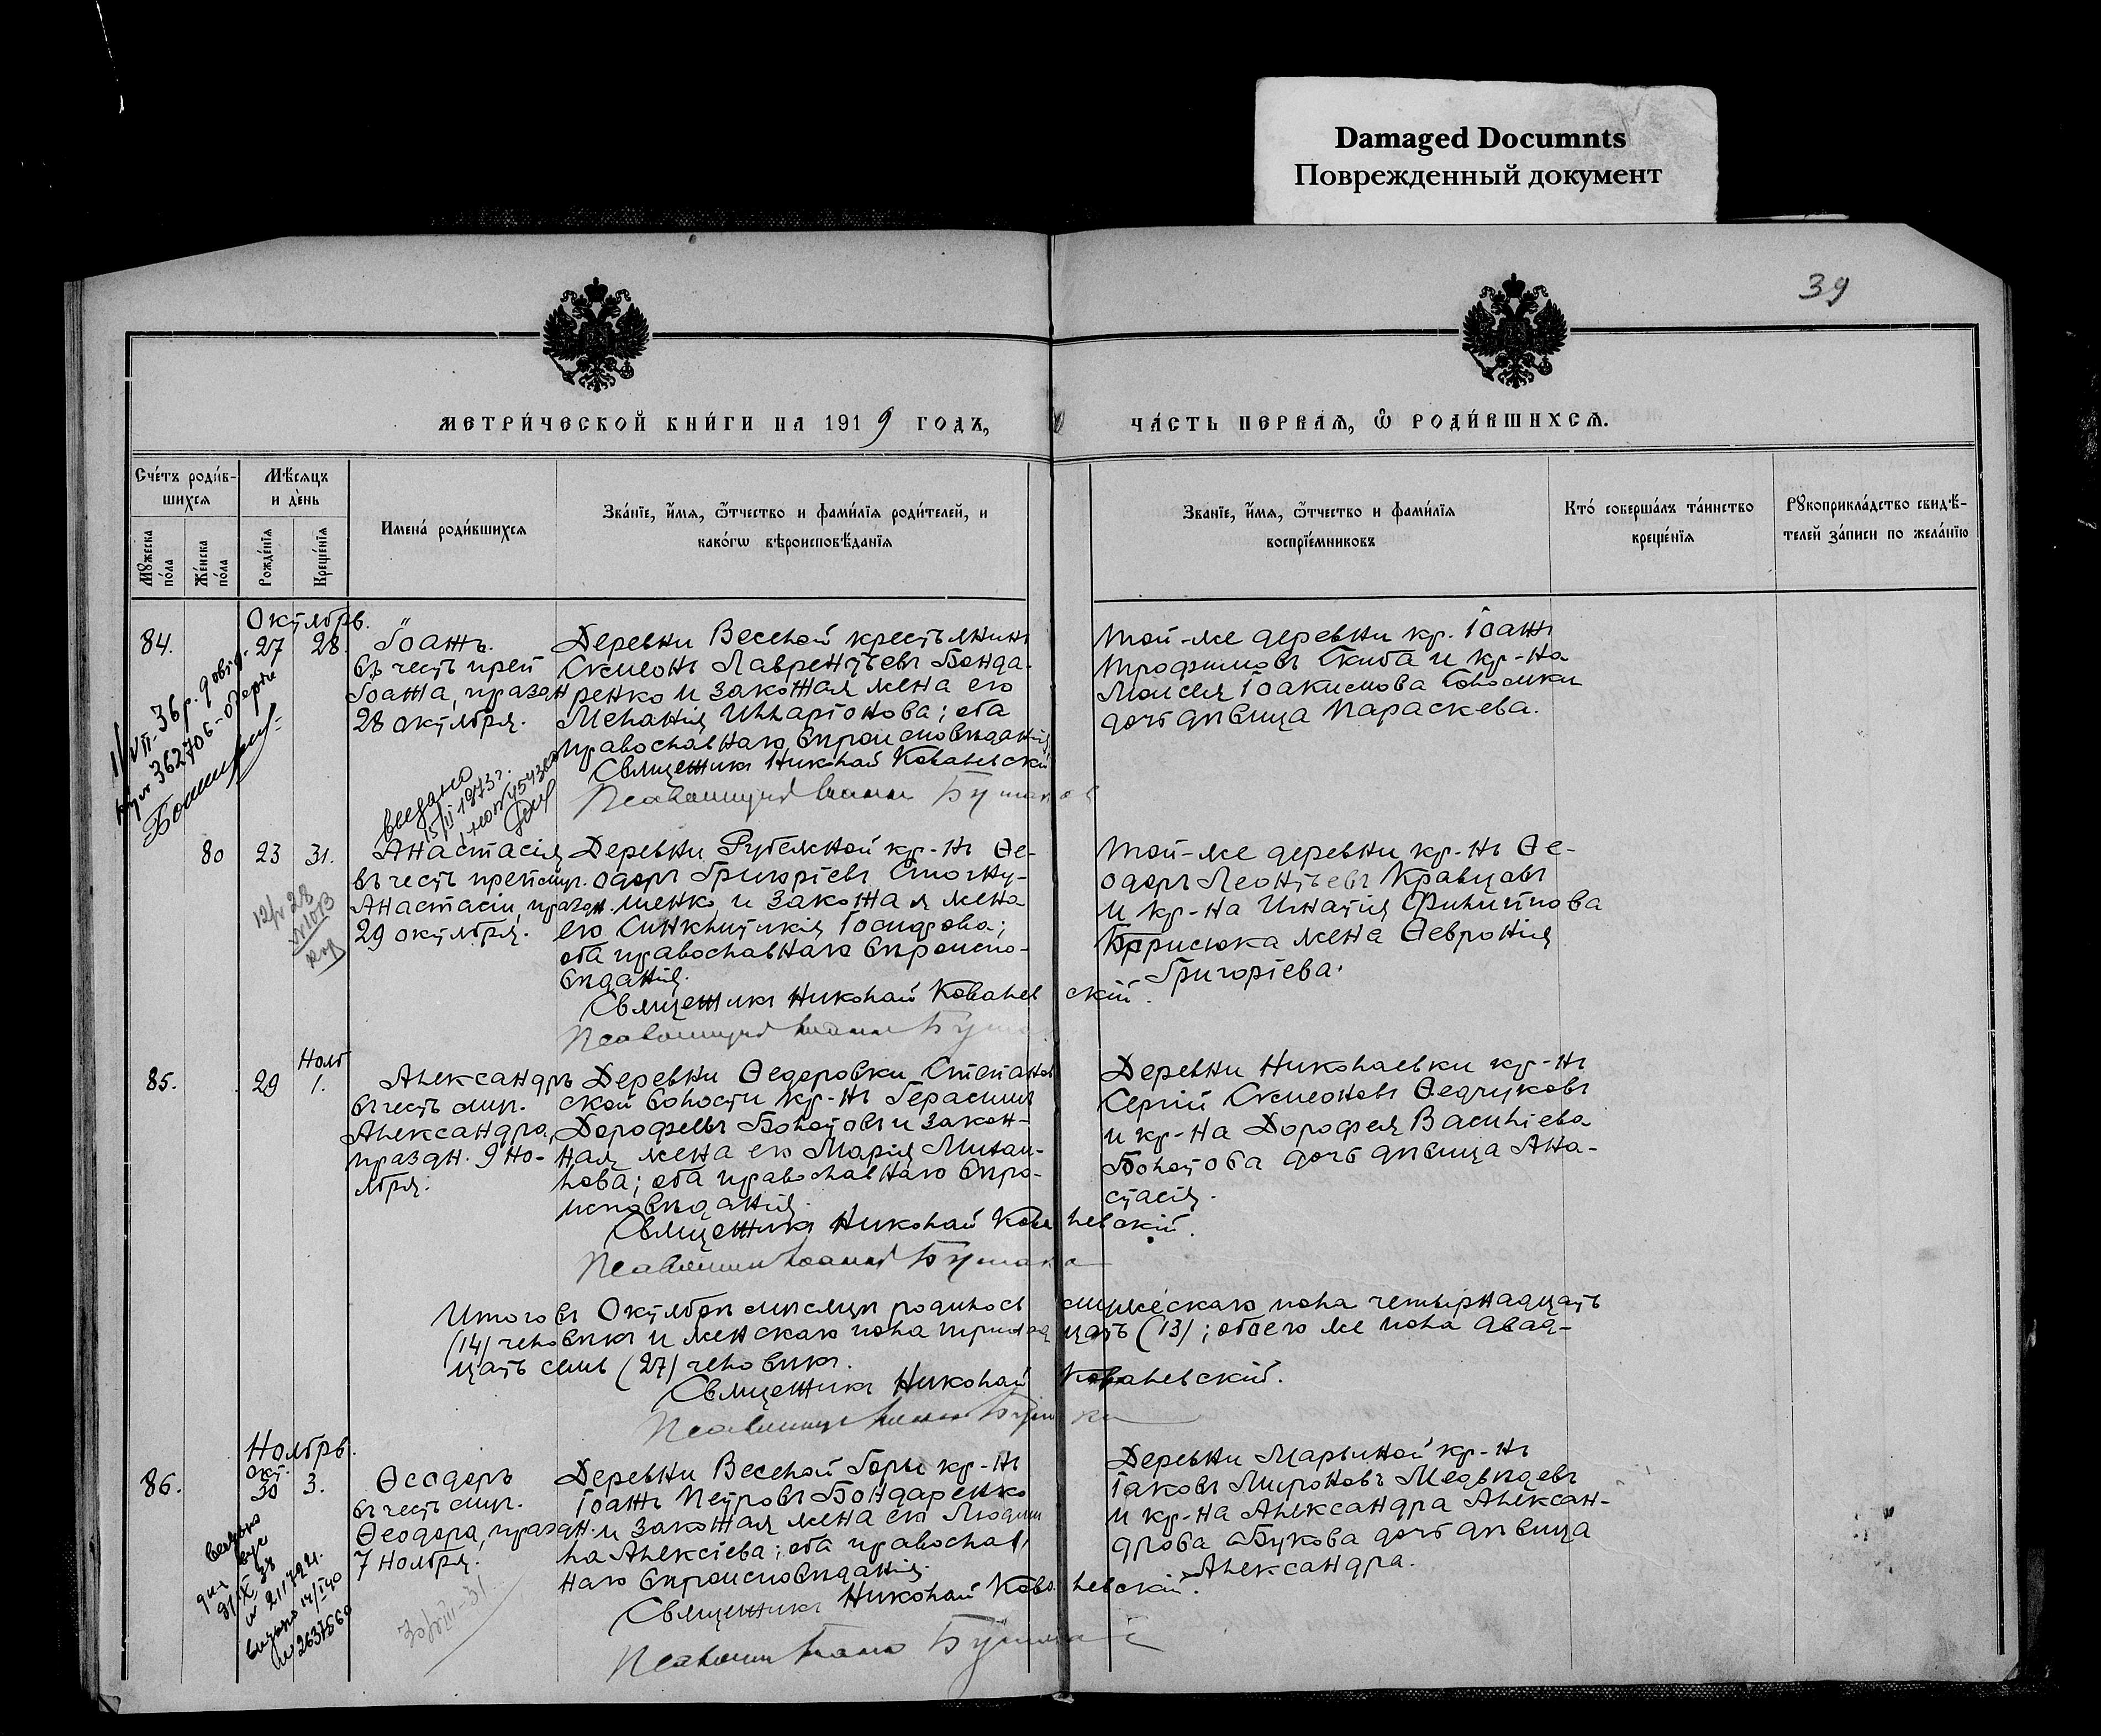 Damaged Documnts
Поврежденный документ
39
МЕТРИ́ЧЕСКОЙ КНИ́ГИ НА 1919 ГОДЪ,
ЧА́СТЬ ПЕРВАѦ, Ѽ РОДИ́ВШИХСѦ.
Сче́тъ роди́в-
шихсѧ
Мꙋжеска
по́ла
Же́нска
по́ла
Мѣ́сѧцъ
и де́нь
Рожде́нїѧ
Креще́нїѧ
Имена́ роди́вшихсѧ
Зва́нїе, и҆́мѧ, ѻ҆́тчество и фами́лїѧ роди́телей, и
како́гѡ вѣроисповѣ́данїѧ
Зва́нїе, и҆́мѧ, ѻ҆́тчество и фами́лїѧ
воспрїе́мниковъ
Кто́ соверша́лъ та́инство
креще́нїѧ
Рꙋкоприкла́дство свидѣ́-
телей за́писи по жела́нїю
Октябрь.
84.
27
28.
Іоаннъ.
въ честь преп
Іоанна, праздн
28 октября.
Деревни Веселой крестьянинъ
Симеонъ Лаврентьевъ Бонда-
ренко и законная жена его
Меланія Илларіонова; оба
православнаго вѣроисповѣданія
Священникъ Николай Ковалевскій
Псаломщикъ Іоаннъ
той-же деревни кр. Іоаннъ
Трофимовъ Скиба и кр-на
Моисея Іоакимова
дочь дѣвица Параскева.
1/VII-36 р.
362706
15/II 1973 г.
80
23
31.
Анастасія
въ честь препмуч.
Анастасіи, праздн.
29 октября.
Деревни Рубежной кр-нъ Ѳе-
одоръ Григоріевъ
шенко и законная жена
его Синклитикія Іосифова;
оба православнаго вѣроиспо-
вѣданія.
Священникъ Николай Ковалевскій.
Псаломщикъ Іоаннъ
той-же деревни кр-нъ Ѳе-
одоръ Леонтьевъ Кравцовъ
и кр-на Игнатія Филиппова
Борисюка жена Ѳевронія
Григоріева.
85.
29
Нояб
1.
Александръ
въ честь муч.
Александра,
праздн. 9 но-
ября.
Деревни Ѳедоровки Степанов
ской волости кр-нъ Герасимъ
Дорофеевъ Болотовъ и закон-
ная жена его Марія Михаи-
лова; оба православнаго вѣро-
исповѣданія.
Священникъ Николай Ковалевскій.
Псаломщикъ Іоаннъ
Деревни Николаевки кр-нъ
Сергій Симеоновъ Ѳедчуковъ
и кр-на Дорофея Васильева
Болотова дочь дѣвица Ана-
стасія.
Итого въ Октябрѣ мѣсяцѣ родилось мужескаго пола четырнадцать
(14) человѣкъ и женскаго пола тринадцать (13); обоего же пола двад-
цать семь (27) человѣкъ.
Священникъ Николай Ковалевскій.
Псаломщикъ Іоаннъ
Ноябрь.
86.
окт.
30
3.
Ѳеодоръ
въ честь муч.
Ѳеодора, праздн.
7 ноября.
Деревни Веселой Горы кр-нъ
Іоаннъ Петровъ Бондаренко
и законная жена его Людми
ла Алексіева; оба православ
наго вѣроисповѣданія.
Священникъ Николай Ковалевскій.
Псаломщикъ Іоаннъ
Деревни Марьиной кр-нъ
Іаковъ Мироновъ Медвѣдевъ
и кр-на Александра Алексан-
дрова Букова дочь дѣвица
Александра.
30/VIII-31